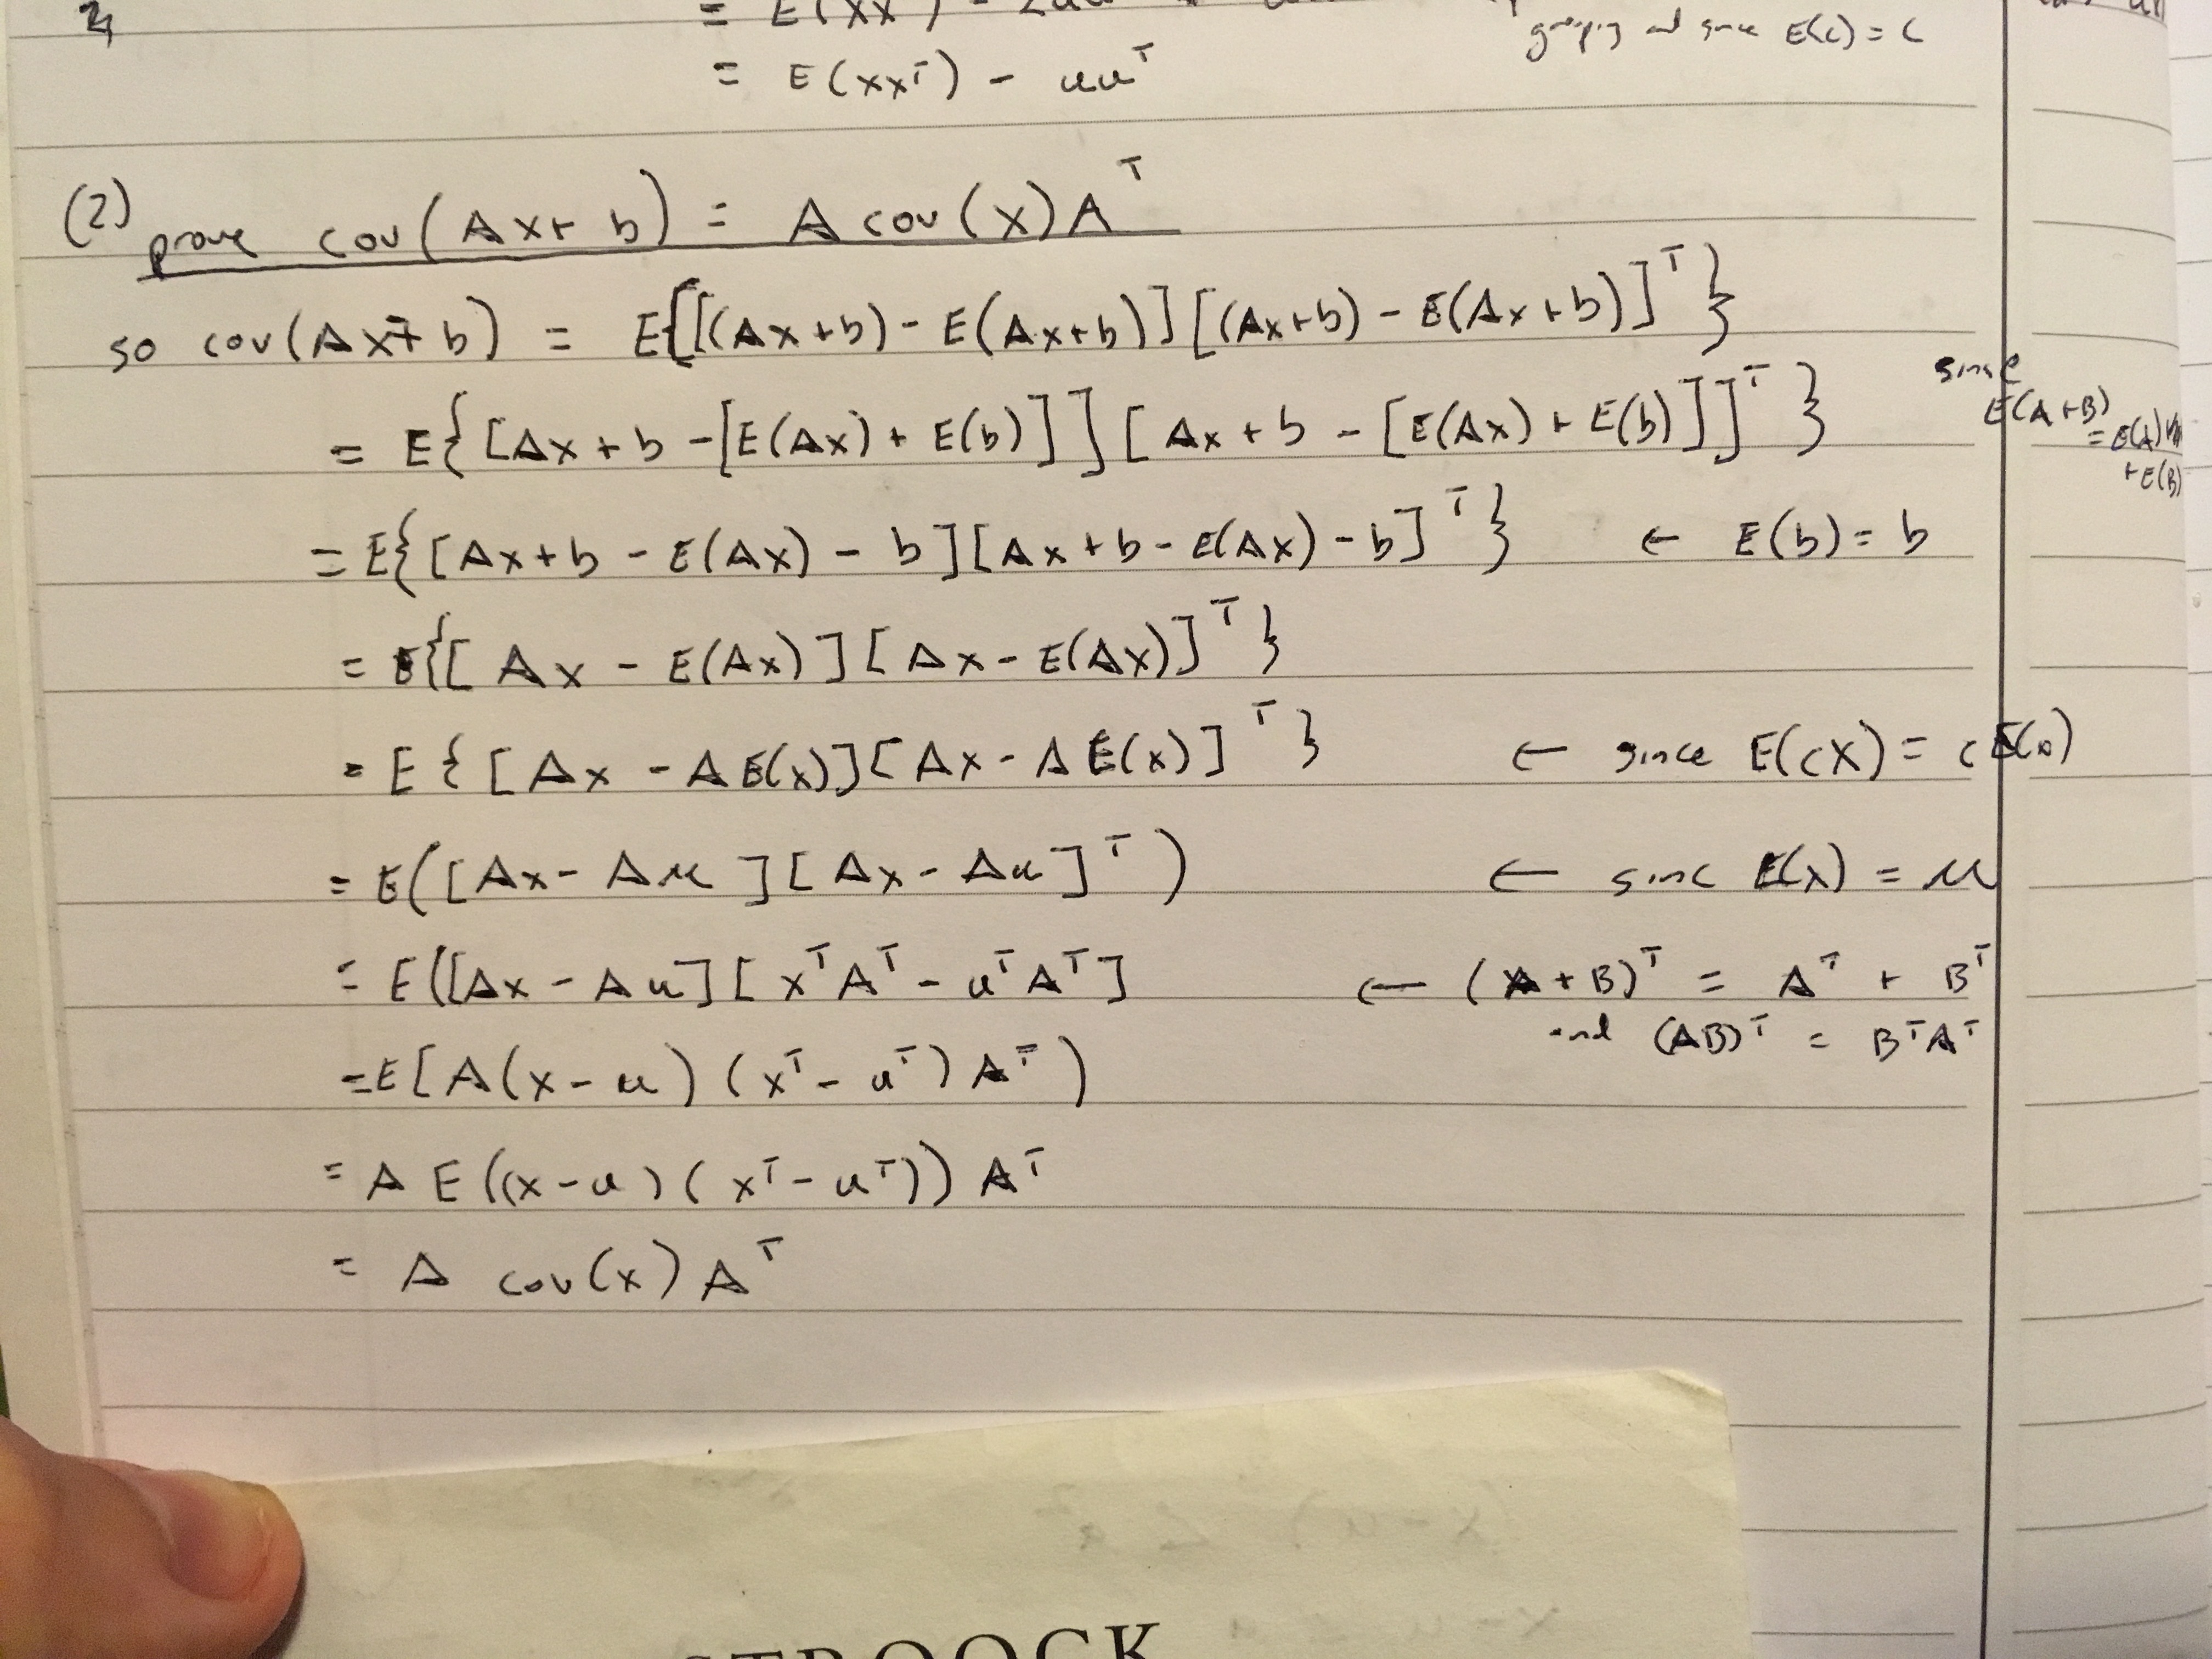 = E(xxᵀ) -
grouping and since E(c) = c
= E(xxᵀ) - uuᵀ
(2) prove cov(Ax+ b) = A cov(x)Aᵀ
so cov(Ax+ b) = E{[(Ax+b) - E(Ax+b)][(Ax+b) - E(Ax+b)]ᵀ}
= E{[Ax+b -[E(Ax)+ E(b)]][Ax+b - [E(Ax) + E(b)]]ᵀ} since E(A+B) = E(A) + E(B)
= E{[Ax+b - E(Ax) - b][Ax+b - E(Ax) - b]ᵀ} ← E(b) = b
= E{[Ax - E(Ax)][Ax - E(Ax)]ᵀ}
= E{[Ax - AE(x)][Ax - AE(x)]ᵀ} ← since E(cX) = cE(x)
= E([Ax - Au][Ax - Au]ᵀ) ← sinc E(x) = u
= E([Ax - Au][xᵀAᵀ - uᵀAᵀ] ← (A+B)ᵀ = Aᵀ + Bᵀ
and (AB)ᵀ = BᵀAᵀ
=E[A(x-u)(xᵀ-uᵀ)Aᵀ)
= A E((x-u)(xᵀ-uᵀ))Aᵀ
= A cov(x)Aᵀ
STROOCK